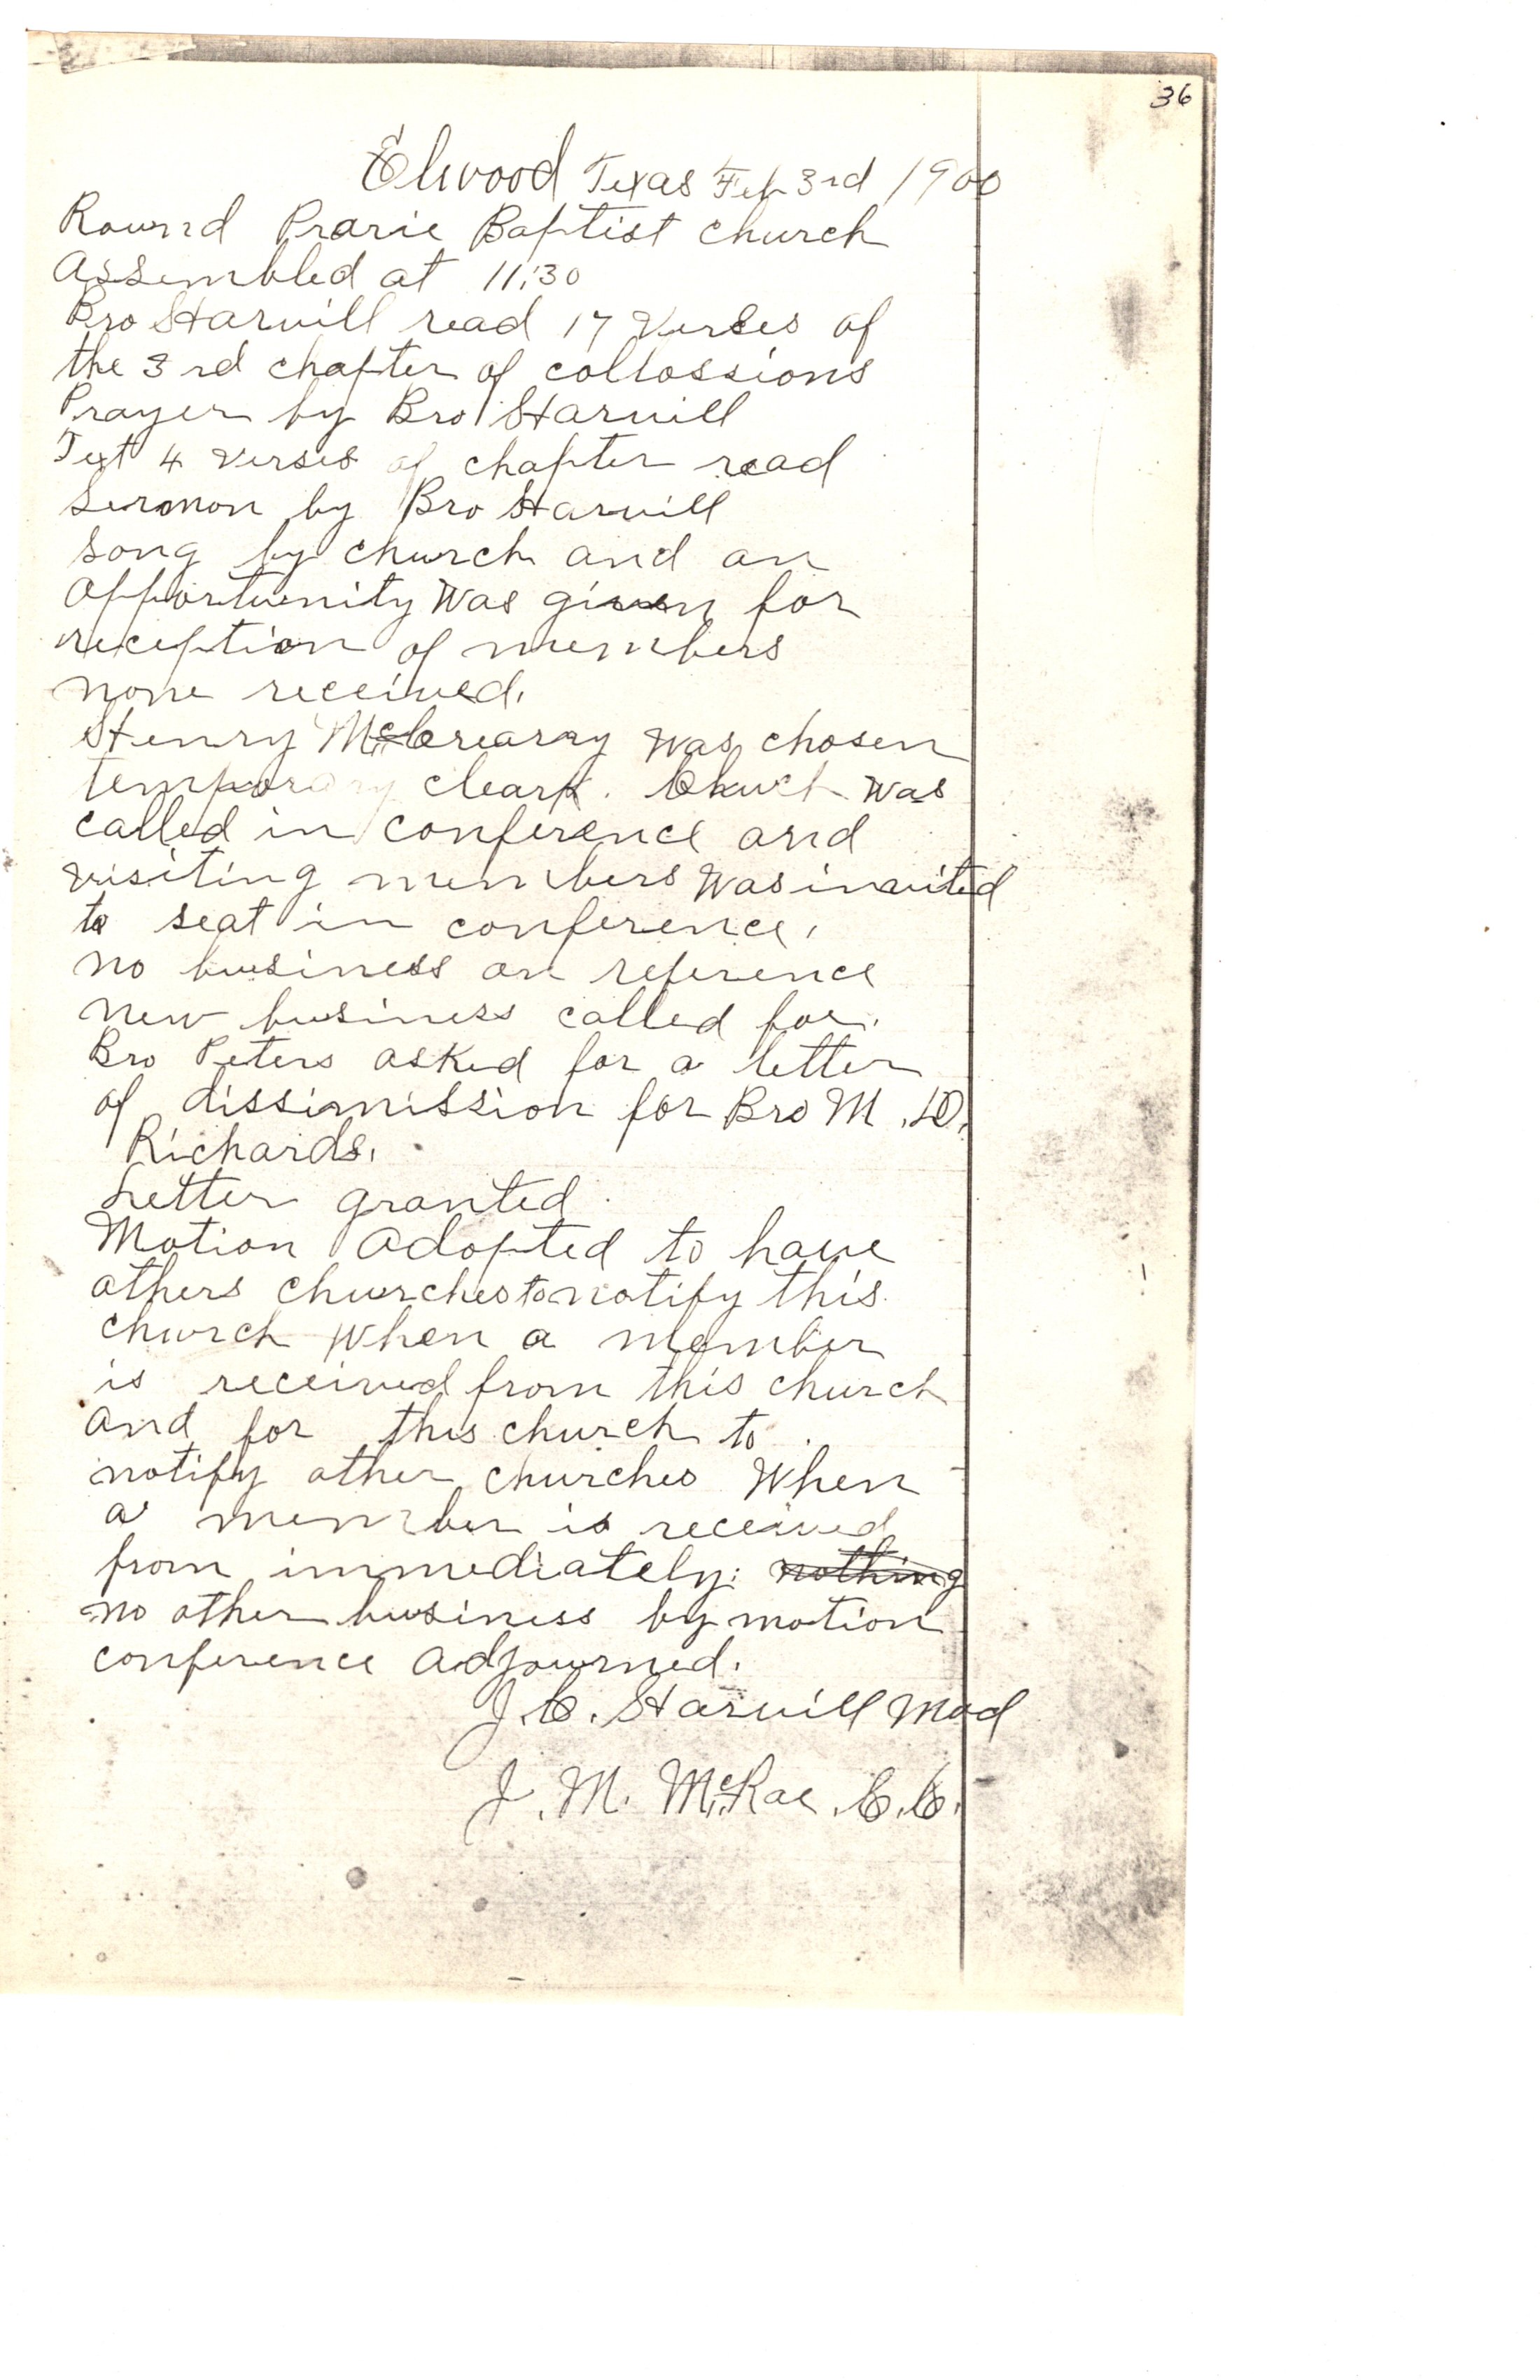 36
Elwood Texas Feb 3rd 1900
Round Prarie Baptist church
Assembled at 11:30
Bro Harvill read 17 Verses of
the 3rd chapter of collossions
Prayer by Bro Harvill
Text 4 verses of chapter read
Sermon by Bro Harvill
song by church and an
opportunity was given for
reception of members
none received.
Henry McCrearry was chosen
temporary cleark. Church was
called in conference and
visiting members was invited
to seat in conference,
no business on reference
new business called for.
Bro Peters asked for a letter
of dissimission for Bro M. D.
Richards.
Letter granted
Motion adopted to have
others churches to notify this
church when a member
is received from this church
and for this church to
notify other churches when
a member is received
from immediately: nothing
no other business by motion
conference adjourned.
J. C. Harvill Mod
J. M. McRae C. C.